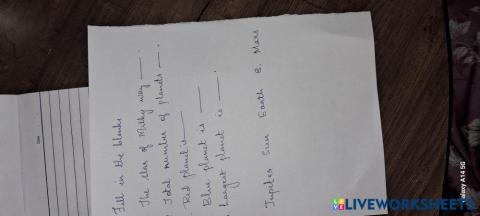 Fill in the blanks
The star of Milky way ——.
Total number of planets ——.
Red planet is ——
Blue planet is ——
Largest planet is ——.
Jupiter Sun Earth 8. Mars
Date
Galaxy A14 5G
LIVEWORKSHEETS